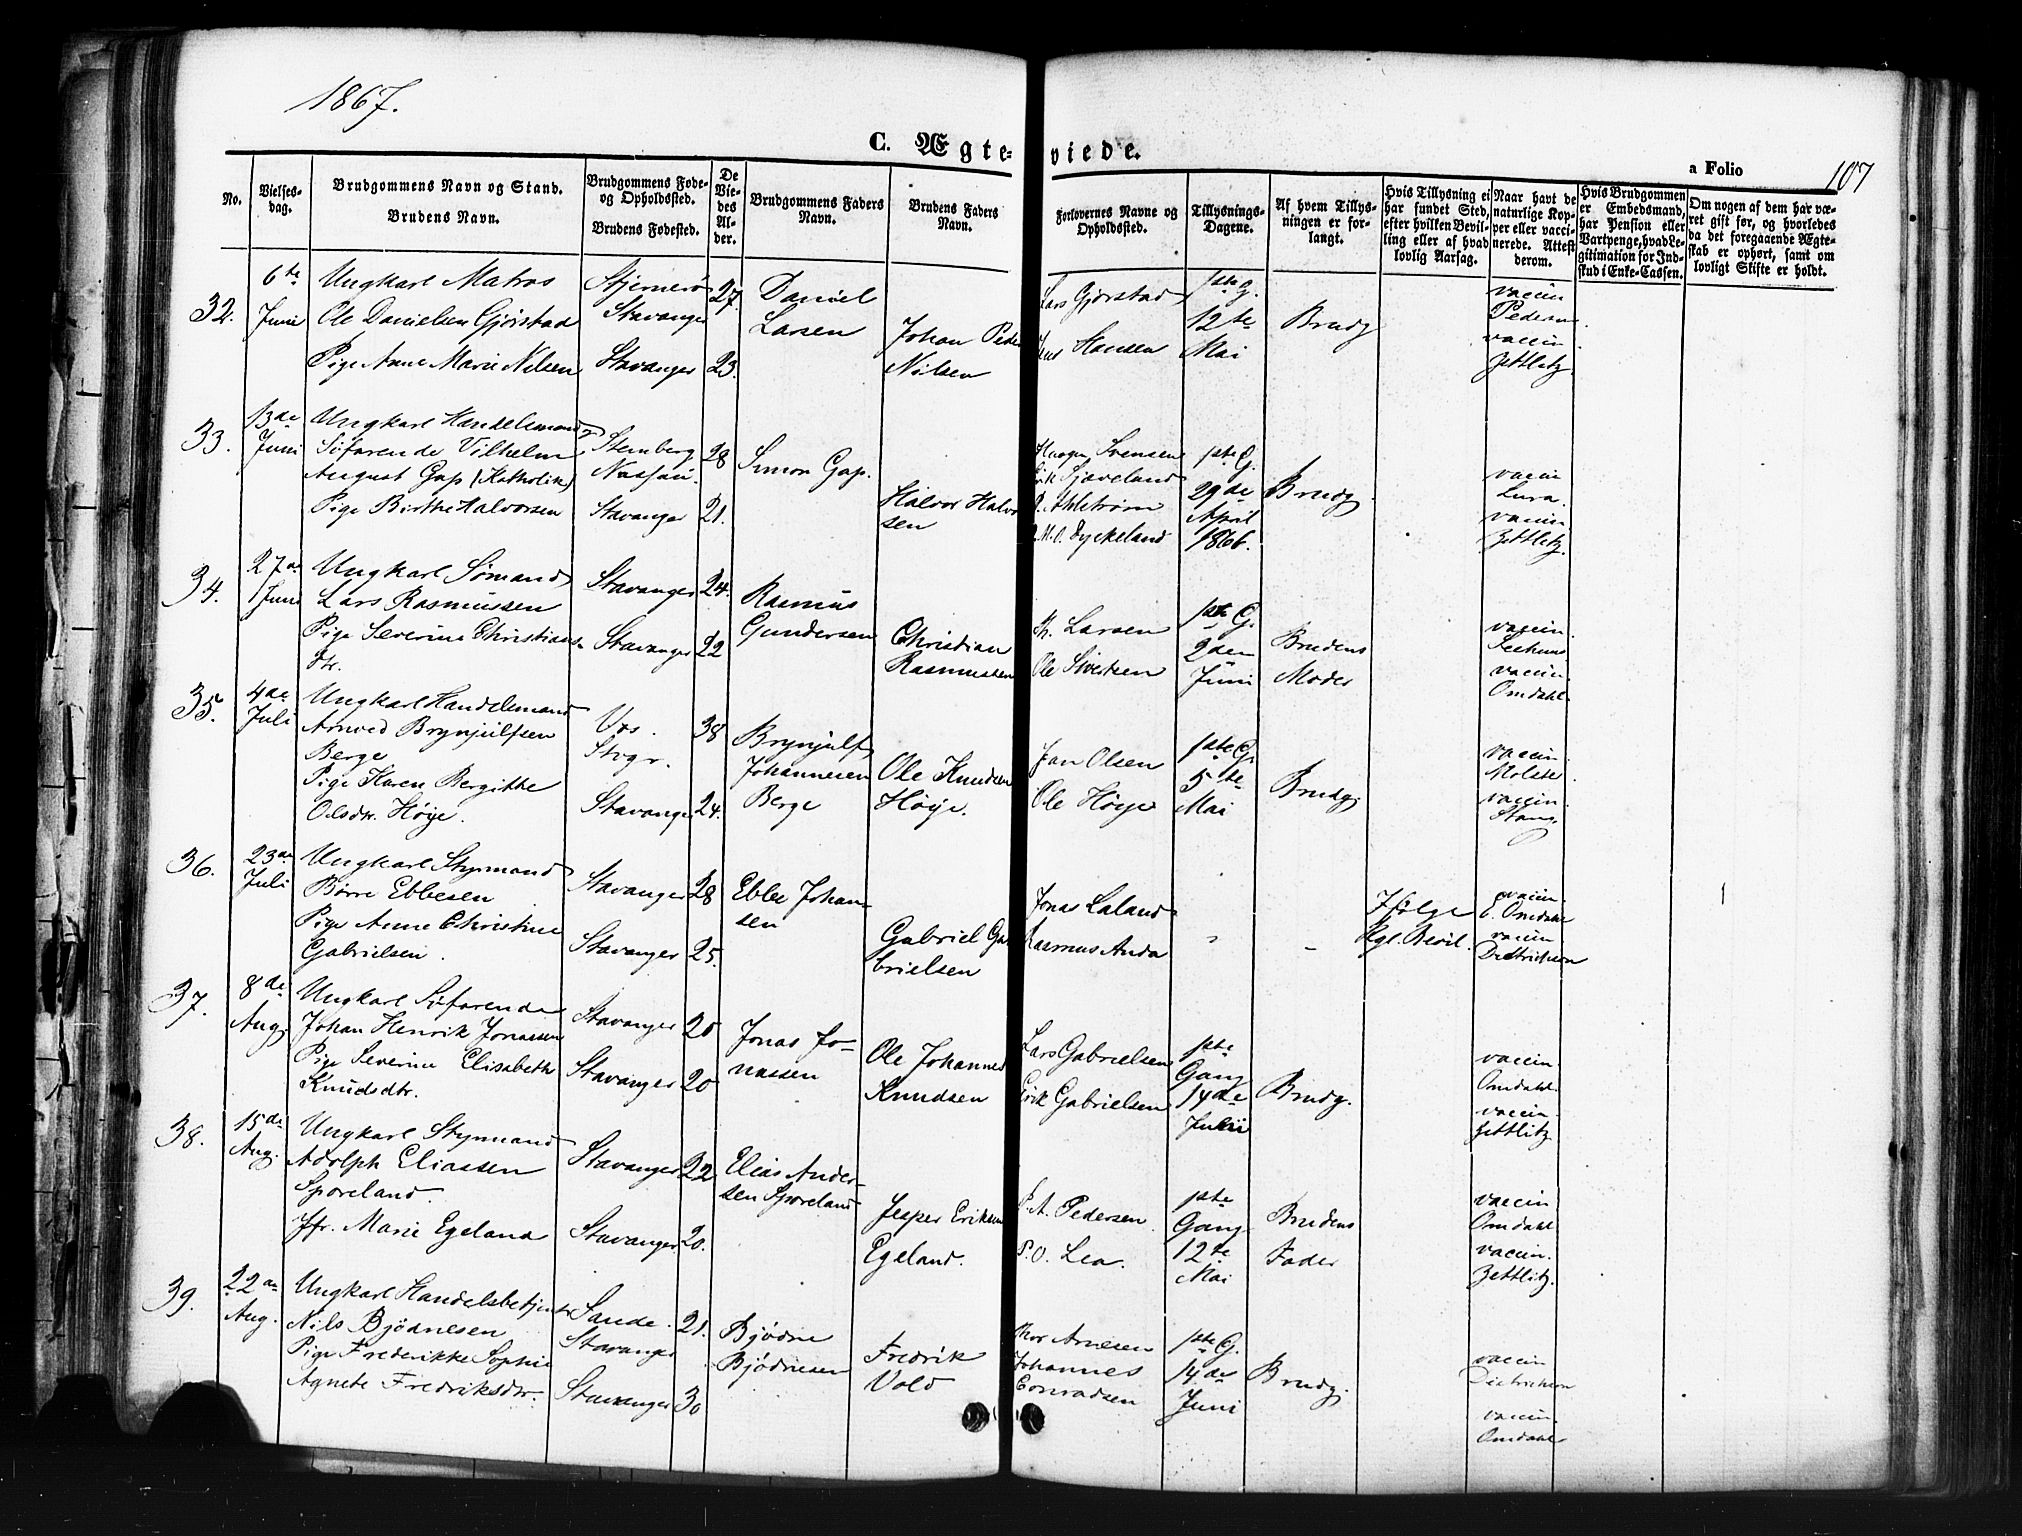 1867.
C. Ægte-
viede.
a Folio
107
No.
Vielses-
dag.
Brudgommens Navn og Stand.
Brudens Navn.
Brudgommens Føde-
og Opholdssted.
Brudens Fødested.
De
Vie-
des
Al-
der.
Brudgommens Faders
Navn.
Brudens Faders
Navn.
Forlovernes Navne og
Opholdssted.
Tillysnings-
Dagene.
Af hvem Tillys-
ningen er for-
langt.
Hvis Tillysning ei
har fundet Sted,
efter hvilken Bevil-
ling eller af hvad
lovlig Aarsag.
Naar havt de
naturlige Kop-
per eller vacci-
nerede. Attest
derom.
Hvis Brudgommen
er Embedsmand,
har Pension eller
Vartpenge, hvad Le-
gitimation for Ind-
skud i Enke-Cassen.
Om nogen af dem har væ-
ret gift før, og hvorledes
da det foregaaende Ægte-
skab er ophørt, samt om
lovligt Skifte er holdt.
32.
6te
Juni
Ungkarl Matros
Ole Danielsen Gjørstad
Pige Anne Marie Nilsen
Stjernerø
Stavanger
Stavanger
27.
23.
Daniel
Larsen
Johan Peder
Nilsen
Lars Gjørstad
Jens Hansen
1ste G.
12te
Mai
Brudg
vaccin
Pedersen
vaccin.
Zettlitz.
33.
13de
Juni
Ungkarl Handelsmand og
Søfarende Vilhelm
August Gap (Katholik)
Pige Birthe Halvorsen
Stemberg
Nassau.
Stavanger
28
21.
Simon Gap.
Halvor Halvor
sen
Haagen Svensen
Erik Sjæveland
P. Ahlstrøm
M. O. Dyckeland
1ste G.
29de
April
1866.
Brudg.
vaccin
Lura.
vaccin.
Zettlitz.
34.
27de
Juni
Ungkarl Sømand
Lars Rasmussen
Pige Severine Christians-
dtr.
Stavanger
Stavanger
24.
22
Rasmus
Gundersen
Christian
Rasmussen
Th. Larsen
Ole Sivertsen
1ste G.
2den
Juni
Brudens
Moder
vaccin.
vaccin.
Omdahl.
35.
4de
Juli
Ungkarl Handelsmand
Arnved Brynjulfsen
Berge
Pige Karen Bergitte
Olsdtr. Høye.
Vos.
Stvgr.
Stavanger
38
24.
Brynjulf
Johannesen
Berge
Ole Knudsen
Høye.
Jan Olsen
Ole Høye
1ste G.
5te
Mai
Brudg.
vaccin.
Molste
vaccin.
Stang.
36.
23de
Juli
Ungkarl Styrmand
Børre Ebbesen
Pige Anne Christine
Gabrielsen.
Stavanger
Stavanger
28
25.
Ebbe Johan-
sen
Gabriel Ga
brielsen
Jonas Laland
Rasmus Anda
Ifølge
Kgl. Bevil.
vaccin.
C. Omdahl
vaccin
Dietrichson
37.
8de
Aug.
Ungkarl Søfarende
Johan Henrik Jonassen
Pige Severine Elisabeth
Knudsdtr.
Stavanger
Stavanger
20
20
Jonas Jo-
nassen
Ole Johannes
Knudsen
Lars Gabrielsen
Erik Gabrielsen
1ste
Gang
14de
Juli
Brudg.
vaccin.
Omdahl.
vaccin.
Zettlitz.
38.
15de
Aug.
Ungkarl Styrmand
Adolph Eliassen
Sporeland.
Jfr. Marie Egeland
Stavanger
Stavanger
22
20.
Elias Ander-
sen Sporeland
Jesper Eriksen
Egeland.
P. A. Pedersen.
P. O. Lea.
1ste
Gang
12te
Mai
Brudens
Fader
vaccin
Omdahl
vaccin.
Zettlitz.
39.
22de
Aug.
Ungkarl Handelsbetjent
Nils Bjødnesen
Pige Frederikke Sophie
Agnete Fredriksdtr.
Sande.
Stavanger
Stavanger
21.
30
Bjødne
Bjødnesen
Fredrik
Vold
Thor Arnesen
Johannes
Conradsen
1ste G.
14de
Juni
Brudg.
vaccin
Dietrichson
vaccin.
Omdahl